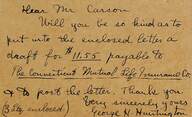 Dear Mr Carson
Will you be so kind as to
put into the enclosed letter a
draft for $11.55 payable to
The Connecticut Mutual Life Insurance Co.
& to post the letter. Thank you
Very sincerely yours
(3 stg enclosed) George N. Huntington